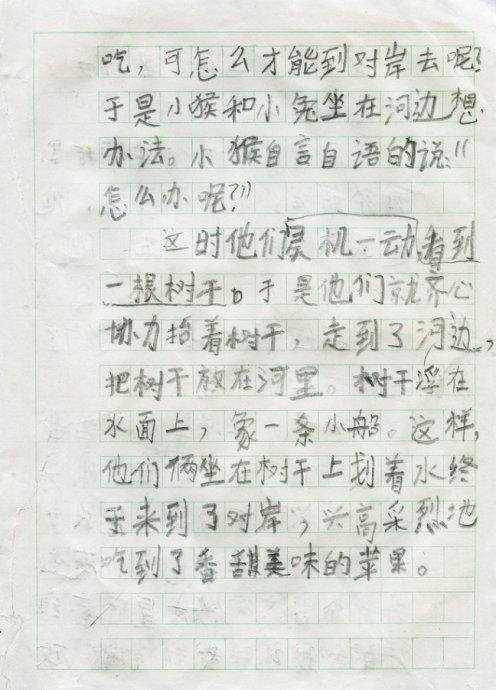 吃，可怎么才能到对岸去呢？
于是小猴和小兔坐在河边想
办法。小猴自言自语的说：“
怎么办呢？”
这时他们灵机一动看到
一根树干。于是他们就齐心
协力抬着树干，走到了河边，
把树干放在河里。树干浮在
水面上，象一条小船。这样，
他们俩坐在树干上划着水终
于来到了对岸，兴高采烈地
吃到了香甜美味的苹果。